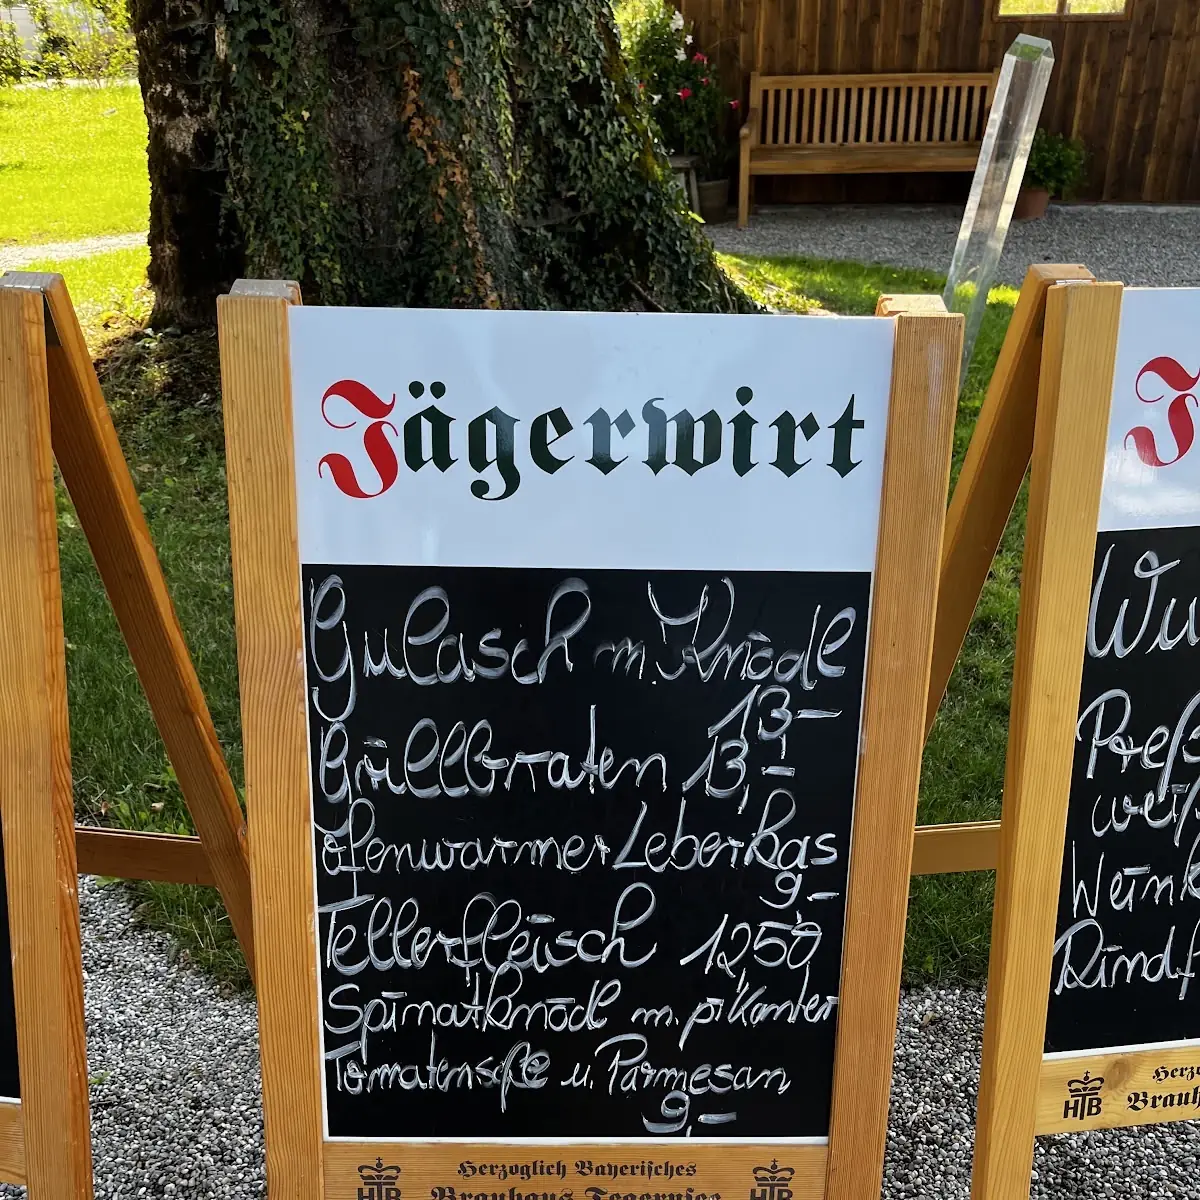 Jägerwirt
Gulasch m. Knödl
13-
Grillbraten 13,-
Ofenwarmer Leberkas
9,-
Tellerfleisch 12,50
Spinatknödl m. pikanter
Tomatensoße u. Parmesan
9,-
Herzoglich Bayerisches
Brauhaus Tegernsee
HTB
HTB
J
Wu
Preß
weiß
Weink
Rindf
HTB
Herzo
Brauh